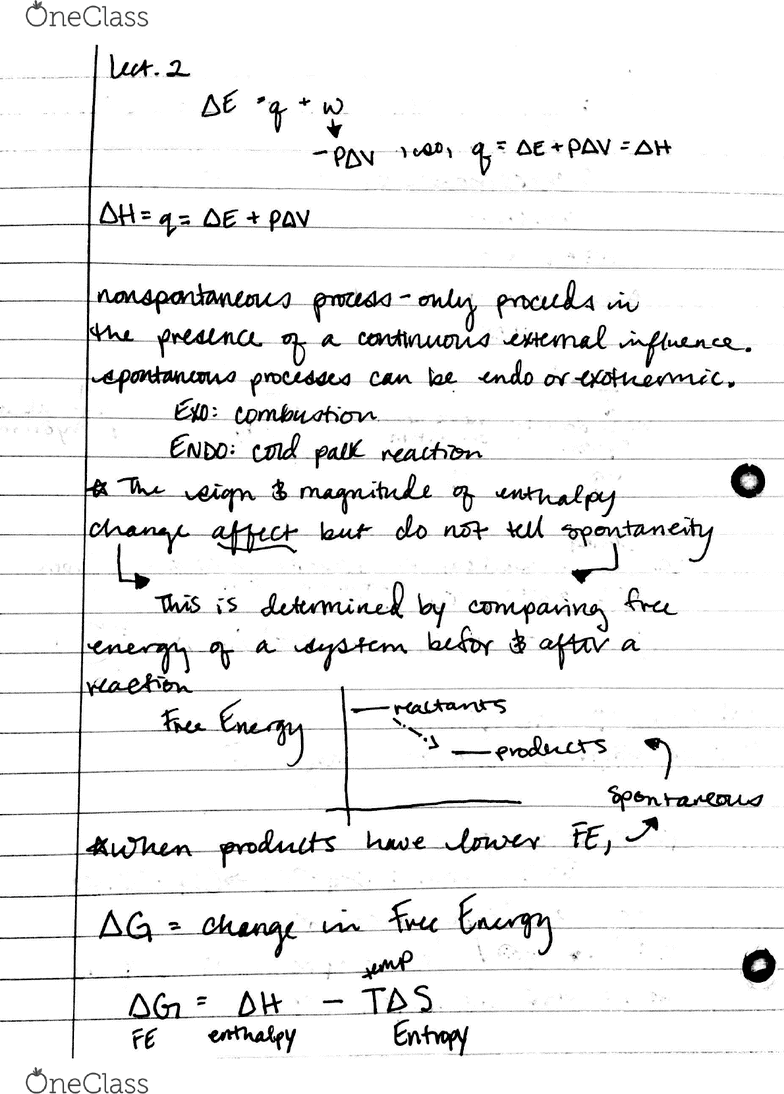 OneClass
Lect. 2
ΔE = q + w
-PΔV , so, q = ΔE + PΔV = ΔH
ΔH = q = ΔE + PΔV
nonspontaneous process - only proceeds in
the presence of a continuous external influence.
spontaneous processes can be endo or exothermic.
EXO: combustion
ENDO: cold pack reaction
* The sign & magnitude of enthalpy
change affect but do not tell spontaneity
This is determined by comparing free
energy of a system befor & after a
reaction
Free Energy
reactants
products
spontaneous
* when products have lower FE,
ΔG = change in Free Energy
temp
ΔG = ΔH - TΔS
FE enthalpy Entropy
OneClass